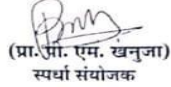 (प्रा. ओ. एम. खनुजा)
स्पर्धा संयोजक